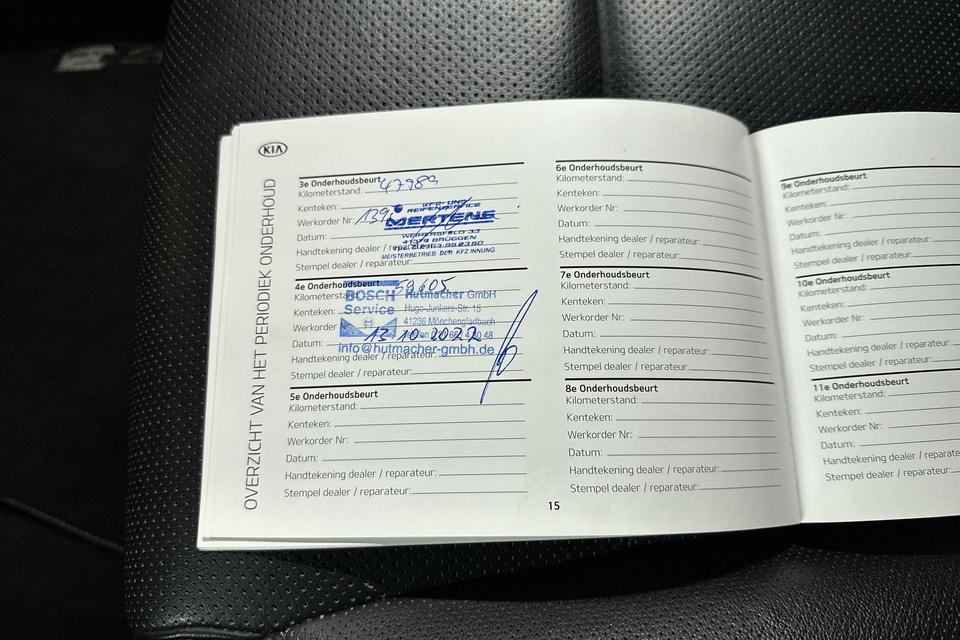 KIA
OVERZICHT VAN HET PERIODIEK ONDERHOUD
3e Onderhoudsbeurt
Kilometerstand: 47989
Kenteken:
Werkorder Nr:
Datum:
Handtekening dealer / reparateur:
Stempel dealer / reparateur:
KFZ- UND
REIFENSERVICE
MERTENS
41379 BRÜGGEN
MEISTERBETRIEB DER KFZ INNUNG
4e Onderhoudsbeurt
Kilometerstand: 59605
Kenteken:
Werkorder Nr:
Datum: 13 10 2022
Handtekening dealer / reparateur:
Stempel dealer / reparateur:
BOSCH
Service
Hutmacher GmbH
Hugo-Junkers-Str. 15
41236 Mönchengladbach
info@hutmacher-gmbh.de
5e Onderhoudsbeurt
Kilometerstand:
Kenteken:
Werkorder Nr:
Datum:
Handtekening dealer / reparateur:
Stempel dealer / reparateur:
6e Onderhoudsbeurt
Kilometerstand:
Kenteken:
Werkorder Nr:
Datum:
Handtekening dealer / reparateur:
Stempel dealer / reparateur:
7e Onderhoudsbeurt
Kilometerstand:
Kenteken:
Werkorder Nr:
Datum:
Handtekening dealer / reparateur:
Stempel dealer / reparateur:
8e Onderhoudsbeurt
Kilometerstand:
Kenteken:
Werkorder Nr:
Datum:
Handtekening dealer / reparateur:
Stempel dealer / reparateur:
15
9e Onderhoudsbeurt
Kilometerstand:
Kenteken:
Werkorder Nr:
Datum:
Handtekening dealer / reparateur:
Stempel dealer / reparateur:
10e Onderhoudsbeurt
Kilometerstand:
Kenteken:
Werkorder Nr:
Datum:
Handtekening dealer / reparateur:
Stempel dealer / reparateur:
11e Onderhoudsbeurt
Kilometerstand:
Kenteken:
Werkorder Nr:
Datum:
Handtekening dealer / reparate
Stempel dealer / reparateur: